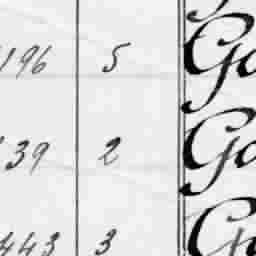 196 5 Go
139 2 Go
443 3 Go